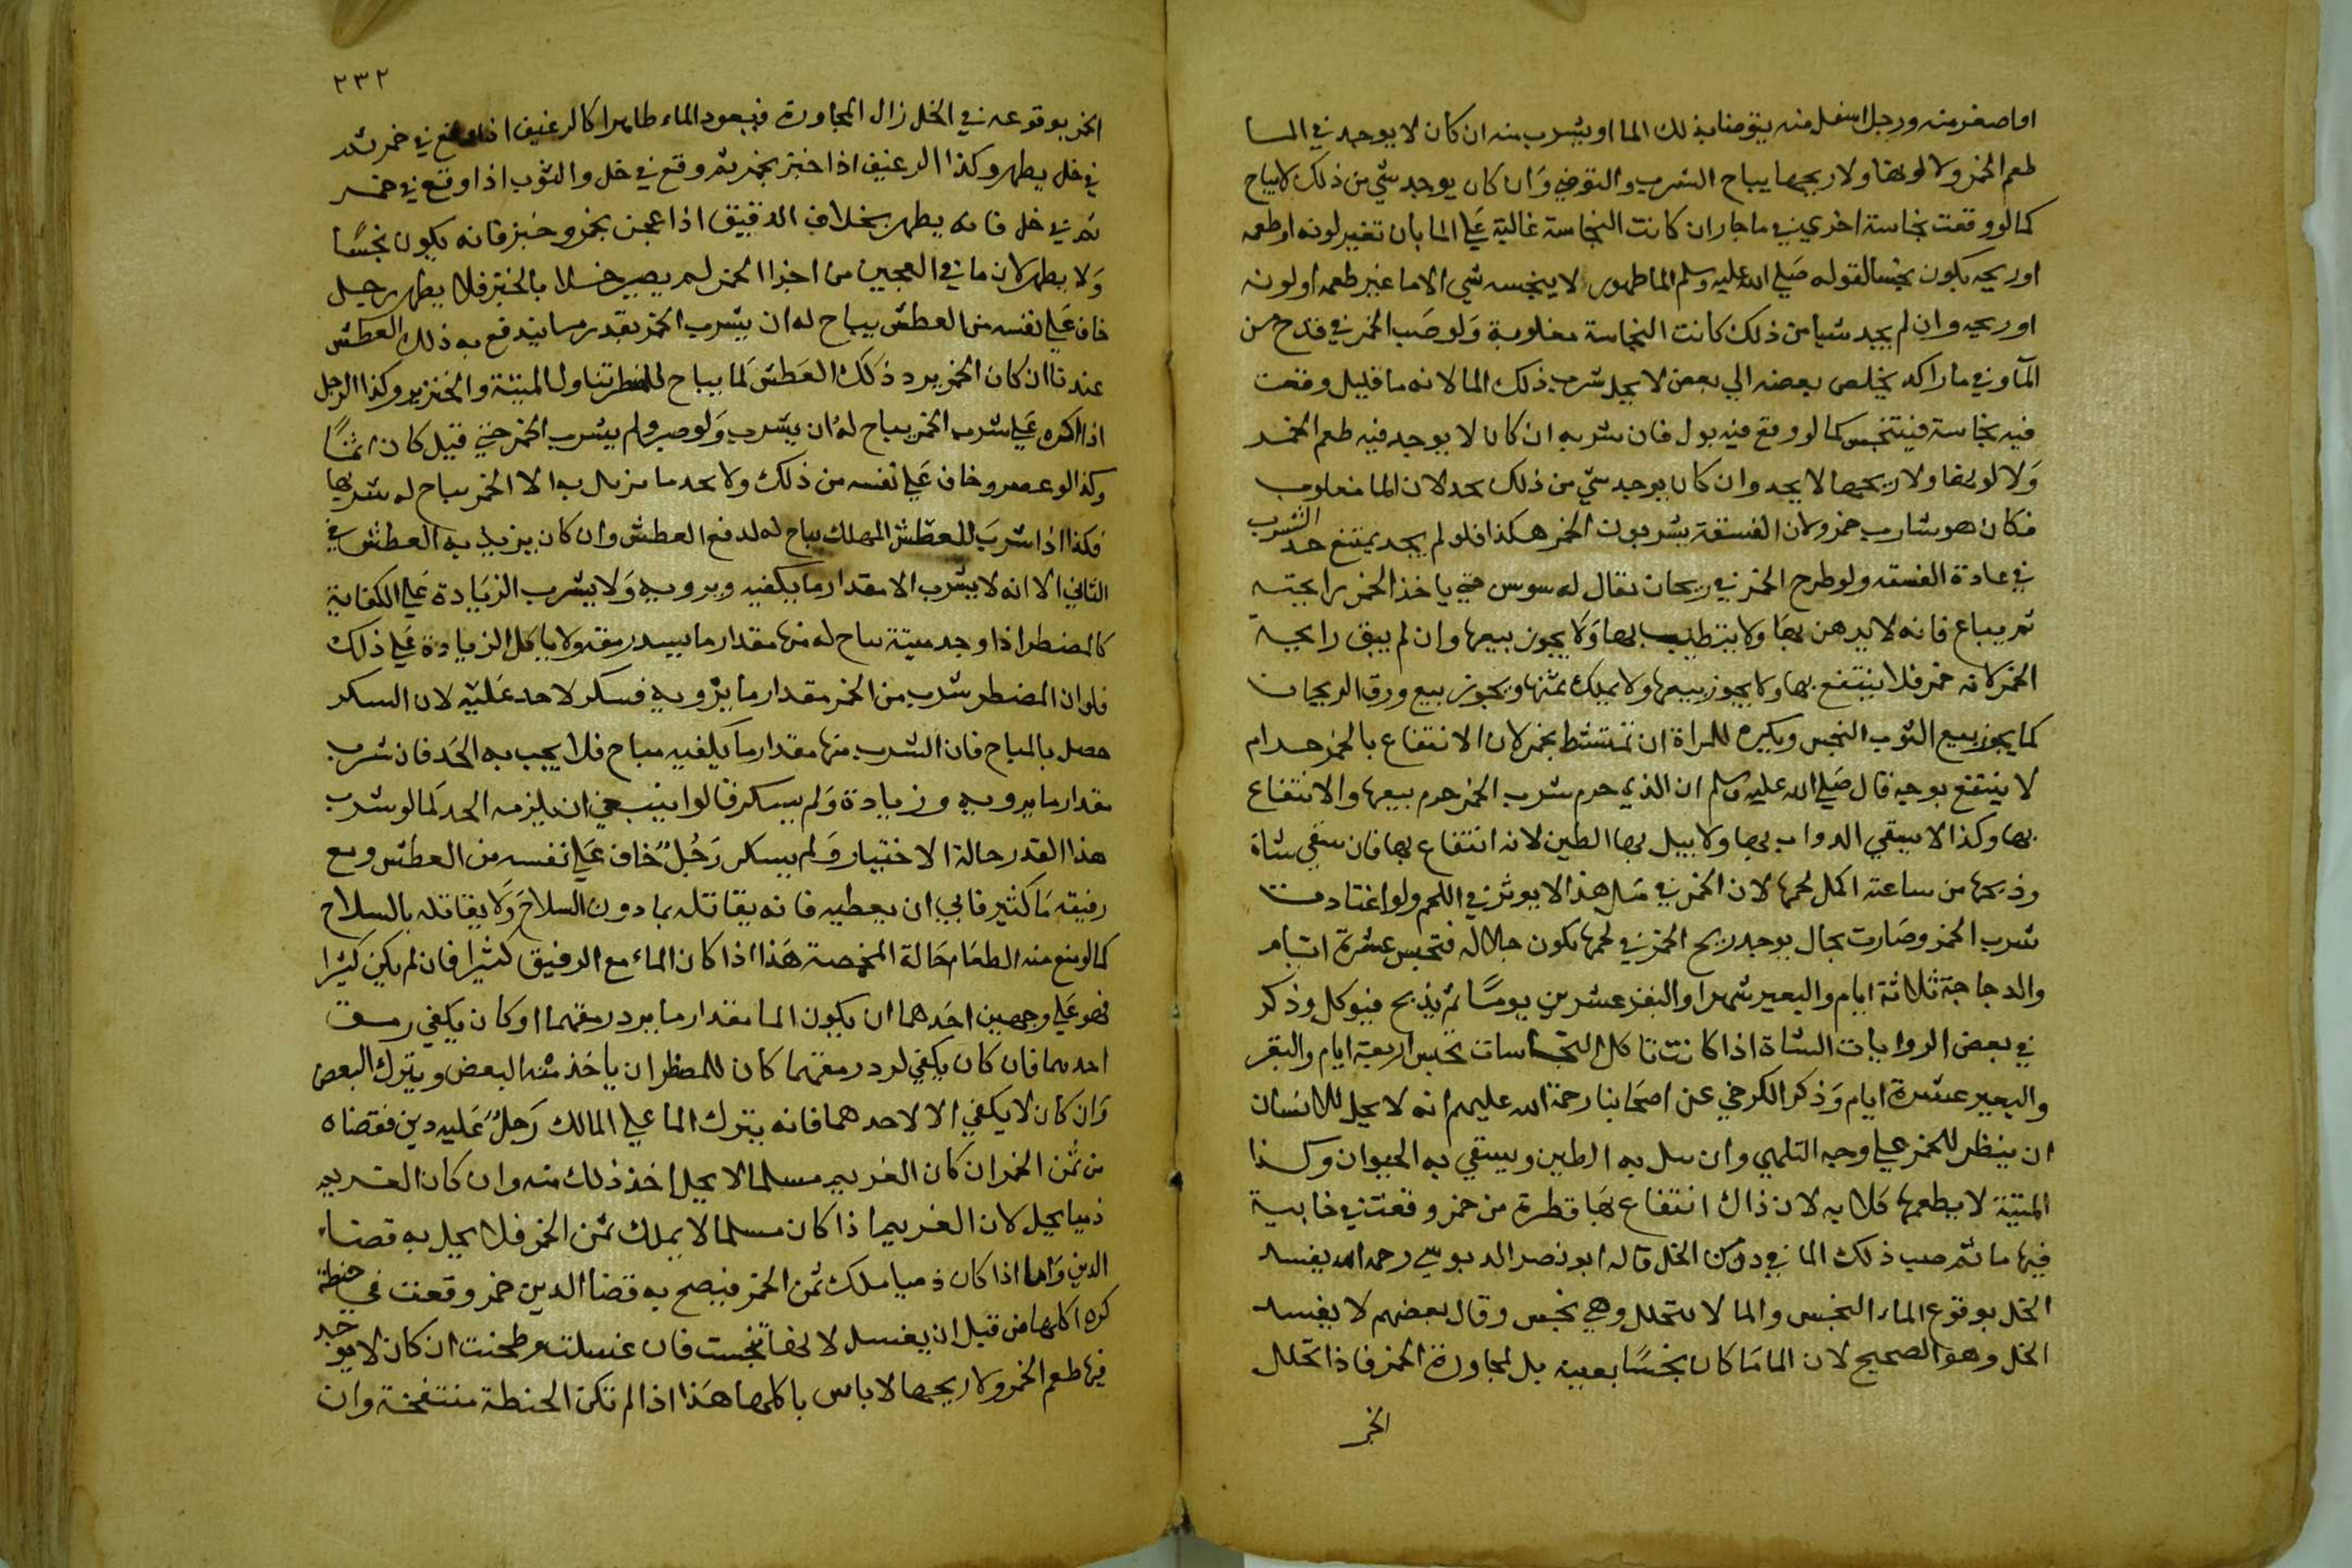 او اصغر منه ورجل اسفل منه يتوضا بذلك الما او يشرب منه ان كان لا يوجد في الما
طعم الخمر ولا لونها ولا ريحها يباح الشرب والتوضي وان كان يوجد شي من ذلك لا يباح
كما لو وقعت نجاسة اخري في ما جار ان كانت النجاسة غالبة علي الما بان تغير لونه او طعمه
او ريحه يكون نجسا لقوله صلي الله عليه وسلم الما طهور لا ينجسه شي الا ما غير طعمه او لونه
او ريحه وان لم يجد شيا من ذلك كانت النجاسة مغلوبة ولو صب الخمر في قدح من
المآ وفي ما راكد يخلص بعضه الي بعض لا يحل شرب ذلك الما لانه ما قليل وقعت
فيه نجاسة فيتنجس كما لو وقع فيه بول فان شربه ان كان لا يوجد فيه طعم الخمر
ولا لونها ولا ريحها لا يحد وان كان يوجد شي من ذلك يحد لان الما مغلوب
فكان هو شارب خمر ولان الفسقة يشربون الخمر هكذا فلو لم يحد يمتنع حد الشرب
في عادة الفسقه ولو طرح الخمر في ريحان يقال له سوسن حتي ياخذ الخمر رايحته
ثم يباع فانه لا يدهن بها ولا يتطيب بها ولا يجوز بيعها وان لم يبق رايحة
الخمر لانه خمر فلا ينتفع بها ولا يجوز بيعها ولا يملك ثمنها ويجوز بيع ورق الريحان
كما يجوز بيع الثوب النجس ويكره للمراة ان تمتشط بخمر لان الانتفاع بالخمر حرام
لا ينتفع بوجه قال صلي الله عليه وسلم ان الذي حرم شرب الخمر حرم بيعها والانتفاع
بها وكذا لا يسقي الدواب بها ولا يبل بها الطين لانه انتفاع بها فان سقي شاة
وذبحها من ساعته اكل لحمها لان الخمر في مثل هذا لا يوثر في اللحم ولو اعتادت
شرب الخمر وصارت بحال يوجد ريح الخمر في لحمها يكون جلاله فتحبس عشرة ايام
والدجاجة ثلاثة ايام والبعير شهرا والبقر عشرين يوما ثم يذبح فيوكل وذكر
في بعض الروايات الشاة اذا كانت تاكل النجاسات تحبس اربعة ايام والبقر
والبعير عشرة ايام وذكر الكرخي عن اصحابنا رحمة الله عليهم انه لا يحل للانسان
ان ينظر للخمر علي وجه التلهي وان يبل به الطين ويسقي به الحيوان وكذا
الميتة لا يطعمها كلابه لان ذاك انتفاع بها قطرة من خمر وقعت في خابية
فيها ما ثم صب ذلك الما في دن من الخل قال ابو نصر الدبوسي رحمه الله يفسد
الخل بوقوع الماء النجس والما لا يتخلل وهي نجس وقال بعضهم لا يفسد
الخل وهو الصحيح لان الما ما كان نجسا بعينه بل لمجاورة الخمر فاذا تخلل
الخمر
٢٣٢
الخمر بوقوعه في الخل زال المجاورة فيعود الماء طاهرا كالرغيف اذا وقع في خمر ثم
في خل يطهر وكذا الرغيف اذا خبز بخمر ثم وقع في خل والثوب اذا وقع في خمر
ثم في خل فانه يطهر بخلاف الدقيق اذا عجن بخمر وخبز فانه يكون نجسا
ولا يطهر لان ما في العجين من اجزا الخمر لم يصير خلا بالخبز فلا يطهر رجل
خاف علي نفسه من العطش يباح له ان يشرب الخمر بقدر ما يندفع به ذلك العطش
عندنا ان كان الخمر يرد ذلك العطش كما يباح للمضطر تناول الميتة والخنزير وكذا الرجل
اذا اكره علي شرب الخمر يباح له ان يشرب ولو صبر ولم يشرب الخمر حتي قتل كان اثما
وكذا لو عصر وخاف علي نفسه من ذلك ولا يجد ما يزيل به الا الخمر يباح له شربها
فكذا اذا شرب للعطش المهلك يباح له لدفع العطش وان كان يزيل به العطش في
الثاني الا انه لا يشرب الا مقدار ما يكفيه ويرويه ولا يشرب الزيادة علي الكفاية
كالمضطر اذا وجد ميتة يباح له منها مقدار ما يسد رمقه ولا ياكل الزيادة علي ذلك
فلو ان المضطر شرب من الخمر مقدار ما يرويه فسكر لا حد عليه لان السكر
حصل بالمباح فان الشرب منها مقدار ما يكفيه مباح فلا يجب به الحد فان شرب
مقدار ما يرويه وزيادة ولم يسكر قالوا ينبغي ان يلزمه الحد كما لو شرب
هذا القدر حالة الاختيار ولم يسكر رجل خاف علي نفسه من العطش ومع
رفيقه ما كثير فابي ان يعطيه فانه يقاتله بما دون السلاح ولا يقاتله بالسلاح
كما لو منع منه الطعام حالة المخمصة هذا اذا كان الماء مع الرفيق كثيرا فان لم يكن كثيرا
فهو علي وجهين احدهما ان يكون الما مقدار ما يرد رمقهما او كان يكفي رمق
احدهما فان كان يكفي لرد رمقهما كان للمضطر ان ياخذ منه البعض ويترك البعض
وان كان لا يكفي الا لاحدهما فانه يترك الما علي المالك رجل عليه دين فقضاه
من ثمن الخمر ان كان الغريم مسلما لا يحل اخذ ذلك منه وان كان الغريم
ذميا يحل لان الغريم اذا كان مسلما لا يملك ثمن الخمر فلا يحل به قضاء
الدين واما اذا كان ذميا ملك ثمن الخمر فيصح به قضا الدين خمر وقعت في حنطة
كره اكلها من قبل ان يغسل لانها تنجست فان غسلت وطحنت ان كان لا يوجد
فيها طعم الخمر ولا ريحها لا باس باكلها هذا اذا لم تكن الحنطة منتفخة وان